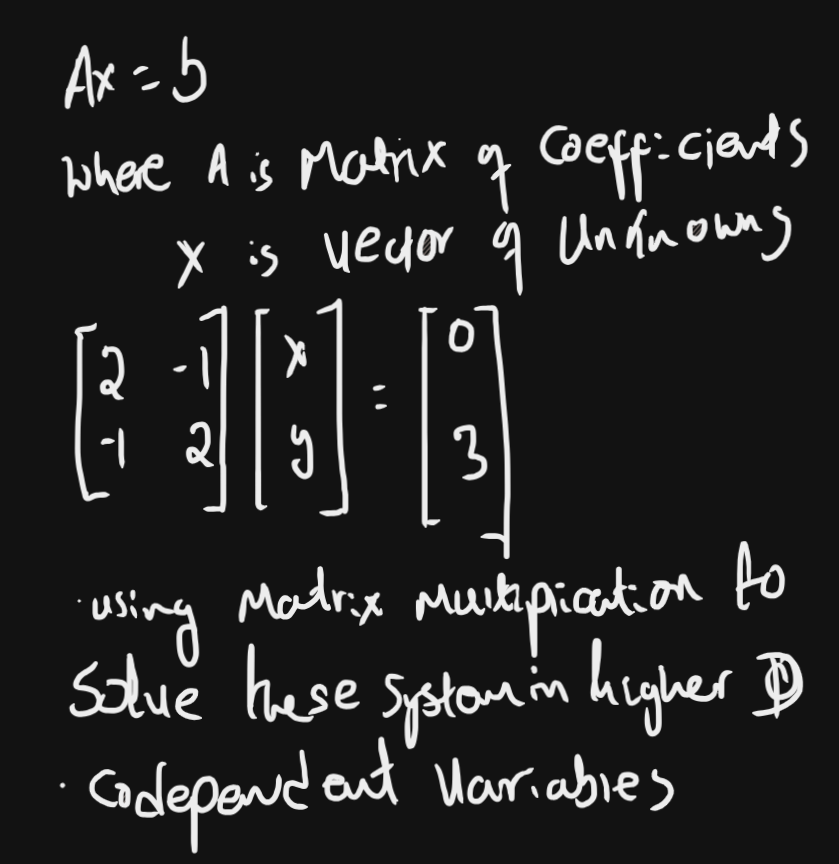 Ax = b
where A is Matrix of Coefficients
x is vector of Unknowns
[2 -1] [x] = [0]
[-1 2] [y] [3]
· using Matrix Multipication to
Solve these System in higher D
· Codependent Variables